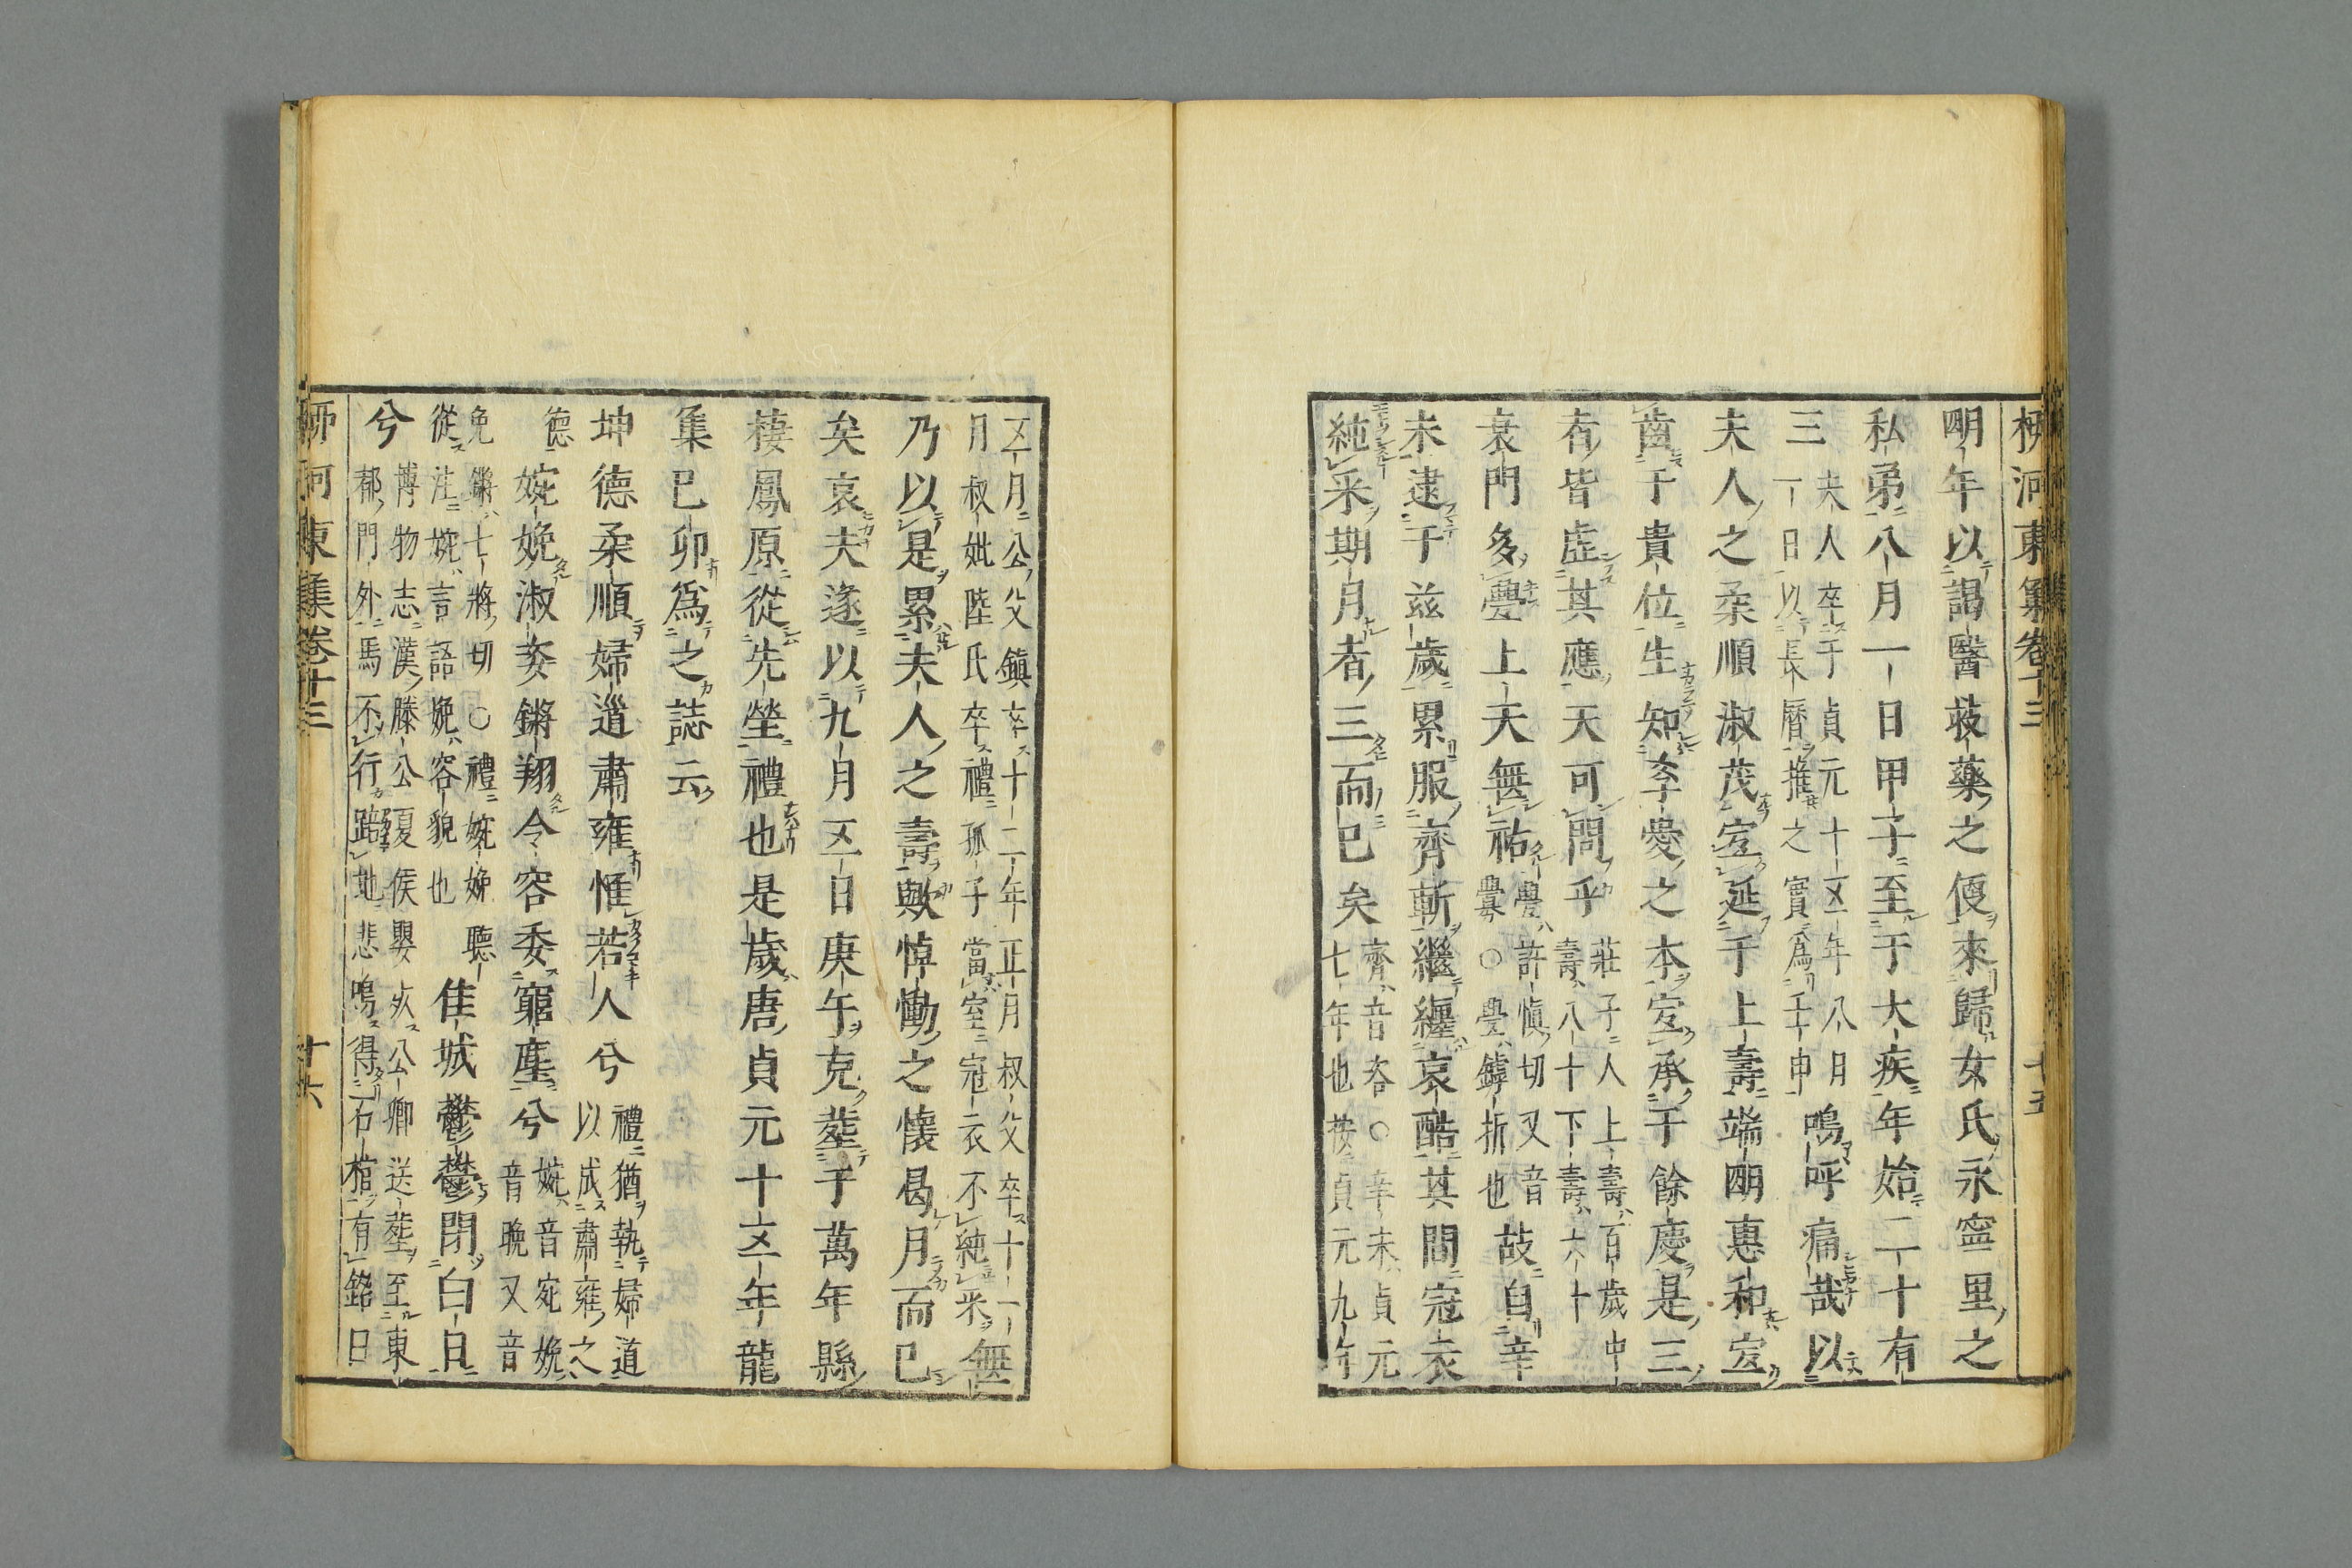 柳河東集卷十三
十五
明年以謁醫救藥之便來歸女氏永寧里之
私第八月一日甲子至于大疾年始二十有
三夫人卒于貞元十五年八月一日以長曆推之實爲壬申嗚呼痛哉以
夫人之柔順淑茂宜延于上壽端明惠和宜
齒于貴位生知孝愛之本宜承于餘慶是三
者皆虛其應天可問乎莊子人上壽百歲中壽八十下壽六十
衰門多舋上天無祐舋許愼切又音舋罅折也故自辛
未逮于玆歲累服齊斬繼纏哀酷其間冠衣
純采期月者三而已矣齊音咨○辛未貞元七年也按貞元九年
五月公父鎭卒十二年正月叔父卒十一月叔妣陸氏卒禮孤子當室冠衣不純采無
乃以是累夫人之壽歟悼慟之懷曷月而已
矣哀夫遂以九月五日庚午克葬于萬年縣
棲鳳原從先塋禮也是歲唐貞元十五年龍
集己卯爲之誌云
坤德柔順婦道肅雍惟若人兮禮猶執婦道以成肅雍之
德婉娩淑姿鏘翔令容委窮塵兮婉音宛娩音晚又音
免鏘七將切○禮婉娩聽從注婉言語娩容貌也佳城鬱鬱閉白日
兮博物志漢滕公夏侯嬰死公卿送葬至東都門外馬不行踣地悲鳴得石槨有銘曰
柳河東集卷十三
十六